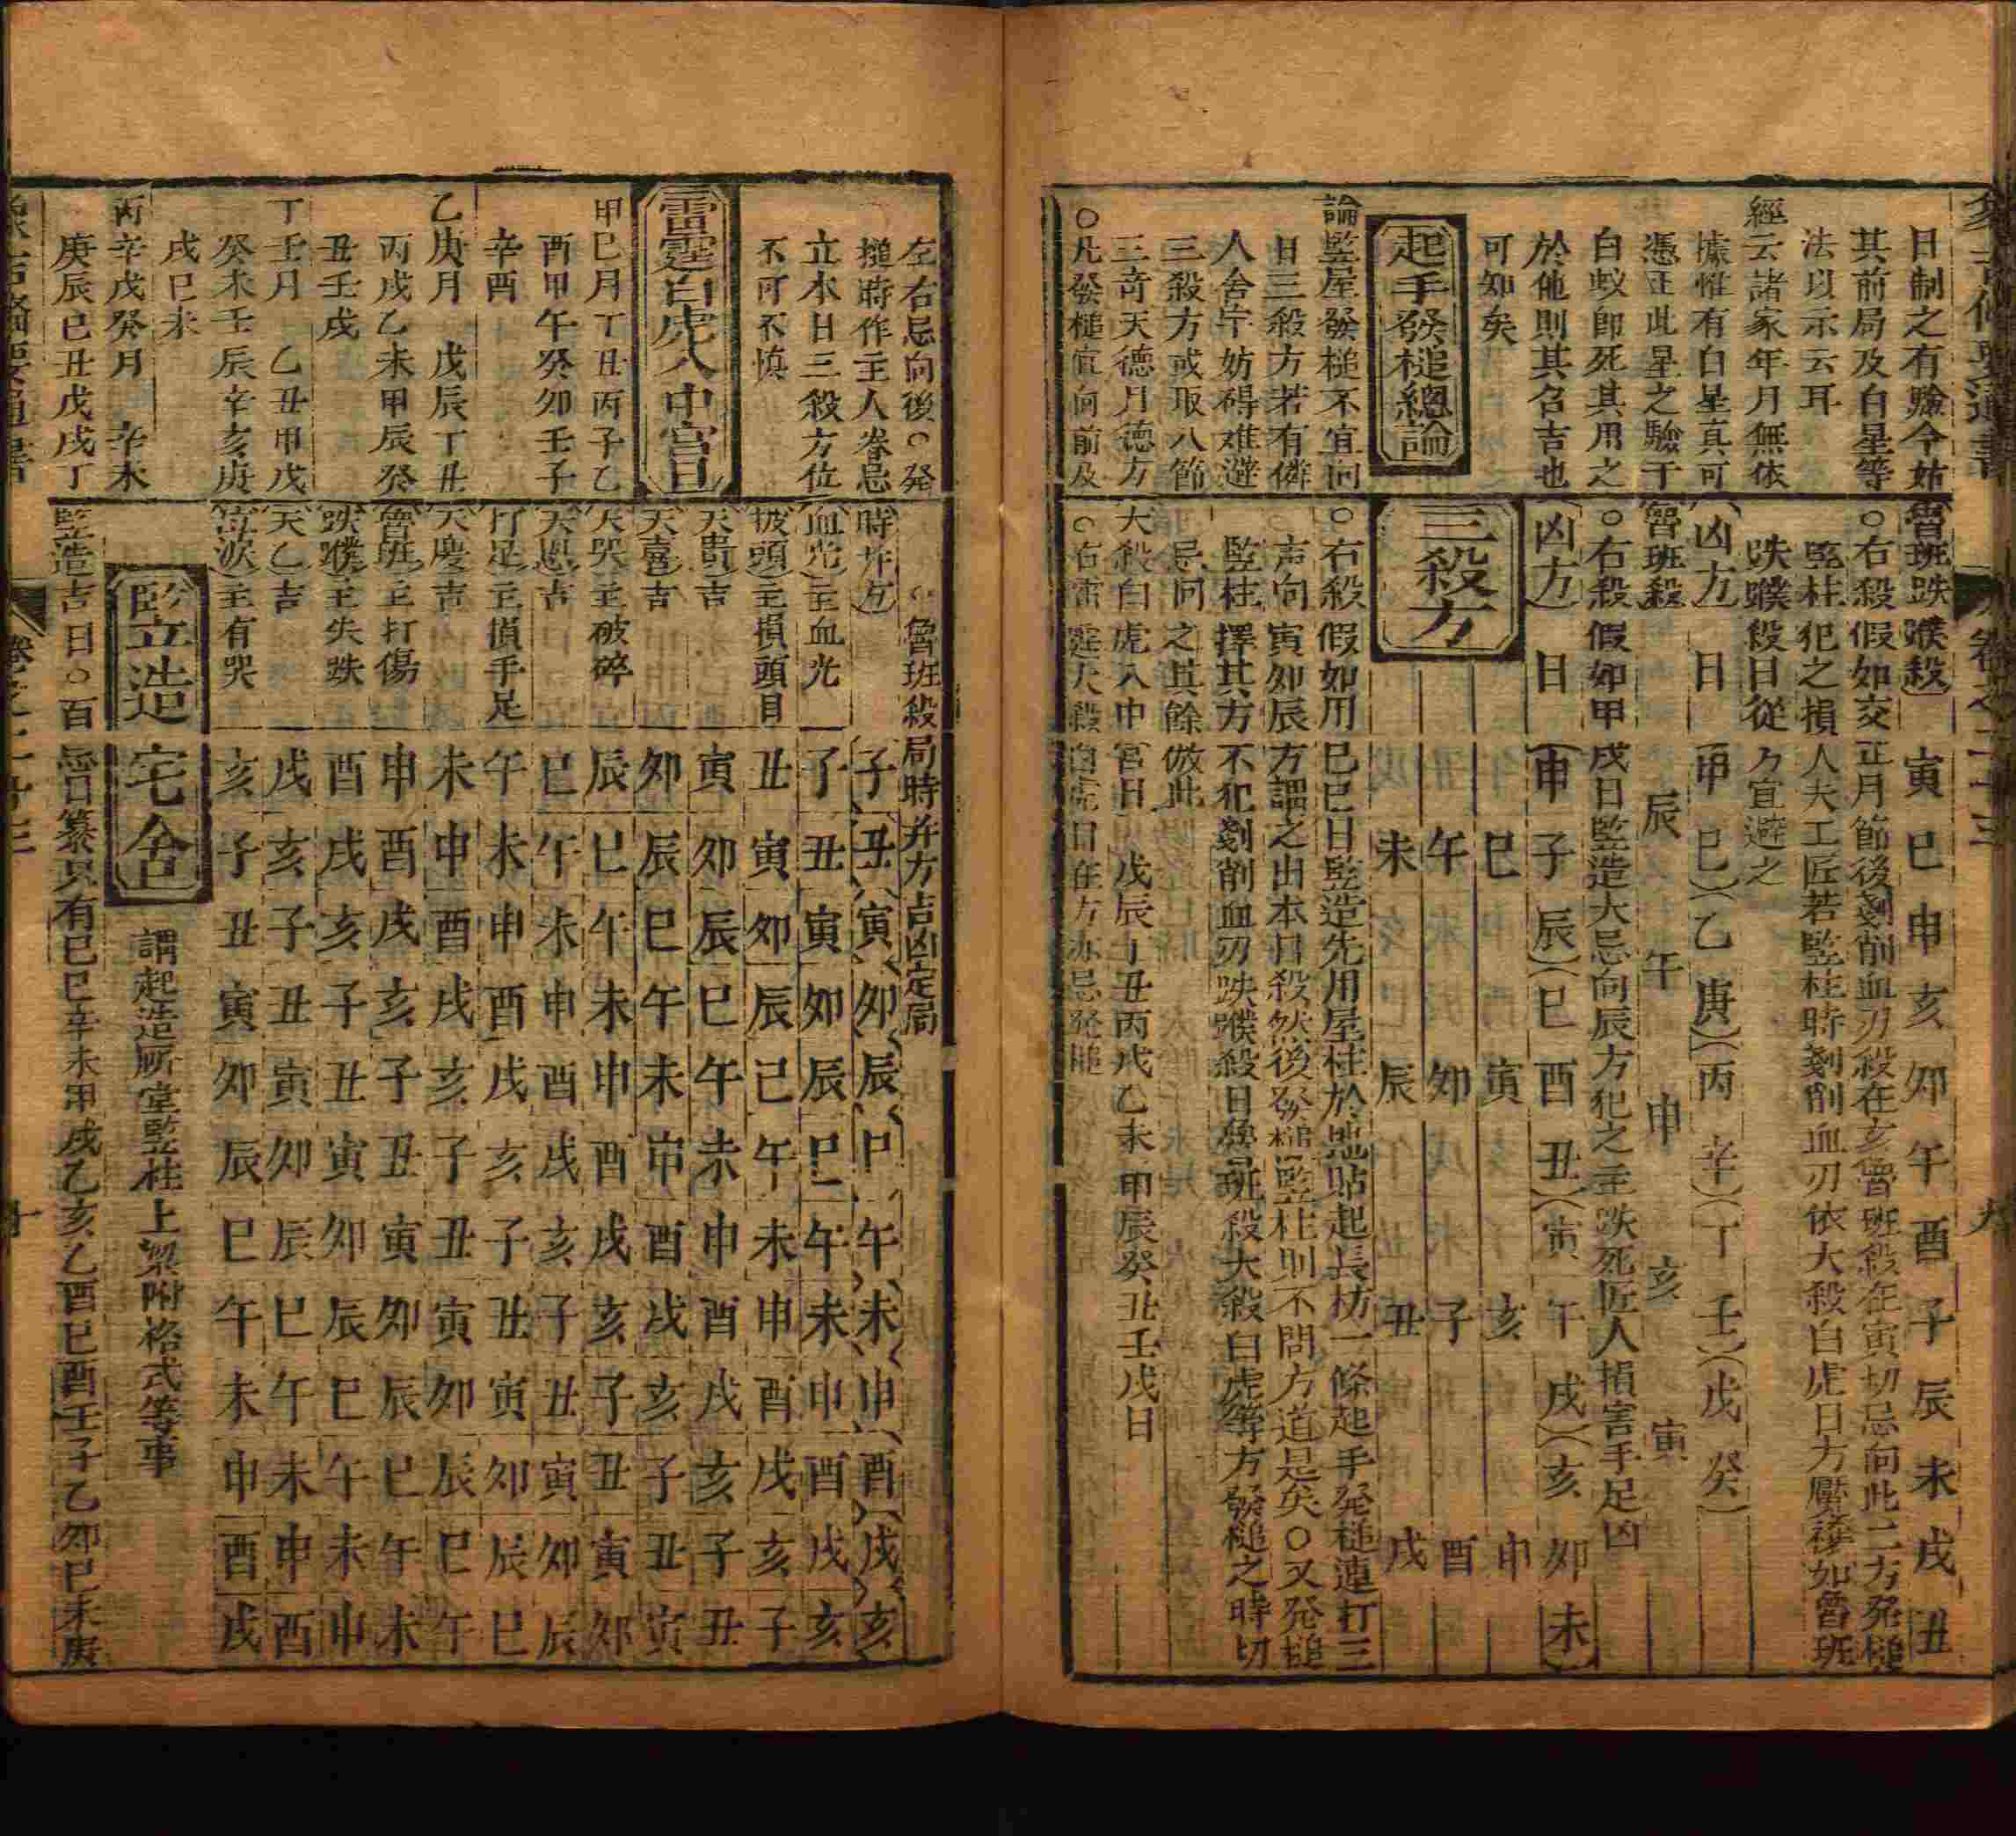 日制之有驗今姑
其前局及白星等
法以示云耳
經云諸家年月無依
據惟有白星真可
憑正此星之驗于
白蚁即死其用之
於他則其召吉也
可知矣
起手發槌總論
論竪屋發槌不宜向
日三殺方若有隣
人舍宇妨碍难避
三殺方或取八節
三奇天德月德方
○凡發槌宜向前及
魯班跌蹼殺 寅 巳 申 亥 卯 午 酉 子 辰 未 戌 丑
○右殺假如交正月節後剗削血刃殺在亥魯班殺在寅切忌向此二方発槌
竪柱犯之損人夫工匠若竪柱時剗削血刃依大殺白虎日方魘禳如魯班
跌蹼殺日從方宜避之
凶方 日 甲己 乙庚 丙辛 丁壬 戊癸
魯班殺 辰 午 申 亥 寅
○右殺假如甲戌日竪造大忌向辰方犯之主跌死匠人損害手足凶
凶方 日 申子辰 巳酉丑 寅午戌 亥卯未
三殺方
巳 寅 亥 申
午 卯 子 酉
未 辰 丑 戌
○右殺假如用巳巳日竪造先用屋柱於地貼起長枋一條起手発槌連打三
声向寅卯辰方謂之出本日殺然後発槌竪柱則不問方道是矣○又発槌
竪柱擇其方不犯剗削血刃跌蹼殺日魯班殺大殺白虎等方發槌之時切
忌向之其餘倣此
大殺白虎入中宮日 戊辰丁丑丙戌乙未甲辰癸丑壬戌日
○右雷霆大殺白虎日在方亦忌発槌
左右忌向後○発
槌時作主人眷忌
立本日三殺方位
不可不慎
雷霆白虎入中宮日
甲己月 丁丑丙子乙
酉甲午癸卯壬子
辛酉
乙庚月 戊辰丁丑
丙戌乙未甲辰癸
丑壬戌
丁壬月 乙丑甲戌
癸未壬辰辛亥庚
戌巳未
丙辛戊癸月 辛未
庚辰巳丑戊戌丁
○魯班殺局時并方吉凶定局
時并方 子 丑 寅 卯 辰 巳 午 未 申 酉 戌 亥
血光 主血光 子 丑 寅 卯 辰 巳 午 未 申 酉 戌 亥
披頭 主損頭目 丑 寅 卯 辰 巳 午 未 申 酉 戌 亥 子
天貴 吉 寅 卯 辰 巳 午 未 申 酉 戌 亥 子 丑
天喜 吉 卯 辰 巳 午 未 申 酉 戌 亥 子 丑 寅
天哭 主破碎 辰 巳 午 未 申 酉 戌 亥 子 丑 寅 卯
天恩 吉 巳 午 未 申 酉 戌 亥 子 丑 寅 卯 辰
打足 主損手足 午 未 申 酉 戌 亥 子 丑 寅 卯 辰 巳
天慶 吉 未 申 酉 戌 亥 子 丑 寅 卯 辰 巳 午
魯班 主打傷 申 酉 戌 亥 子 丑 寅 卯 辰 巳 午 未
跌蹼 主失跌 酉 戌 亥 子 丑 寅 卯 辰 巳 午 未 申
天乙 吉 戌 亥 子 丑 寅 卯 辰 巳 午 未 申 酉
泣淚 主有哭 亥 子 丑 寅 卯 辰 巳 午 未 申 酉 戌
竪造宅舍 謂起造厛堂竪柱上梁附格式等事
竪造吉日○百忌日纂只有巳巳辛未甲戌乙亥乙酉巳酉壬子乙卯巳未庚